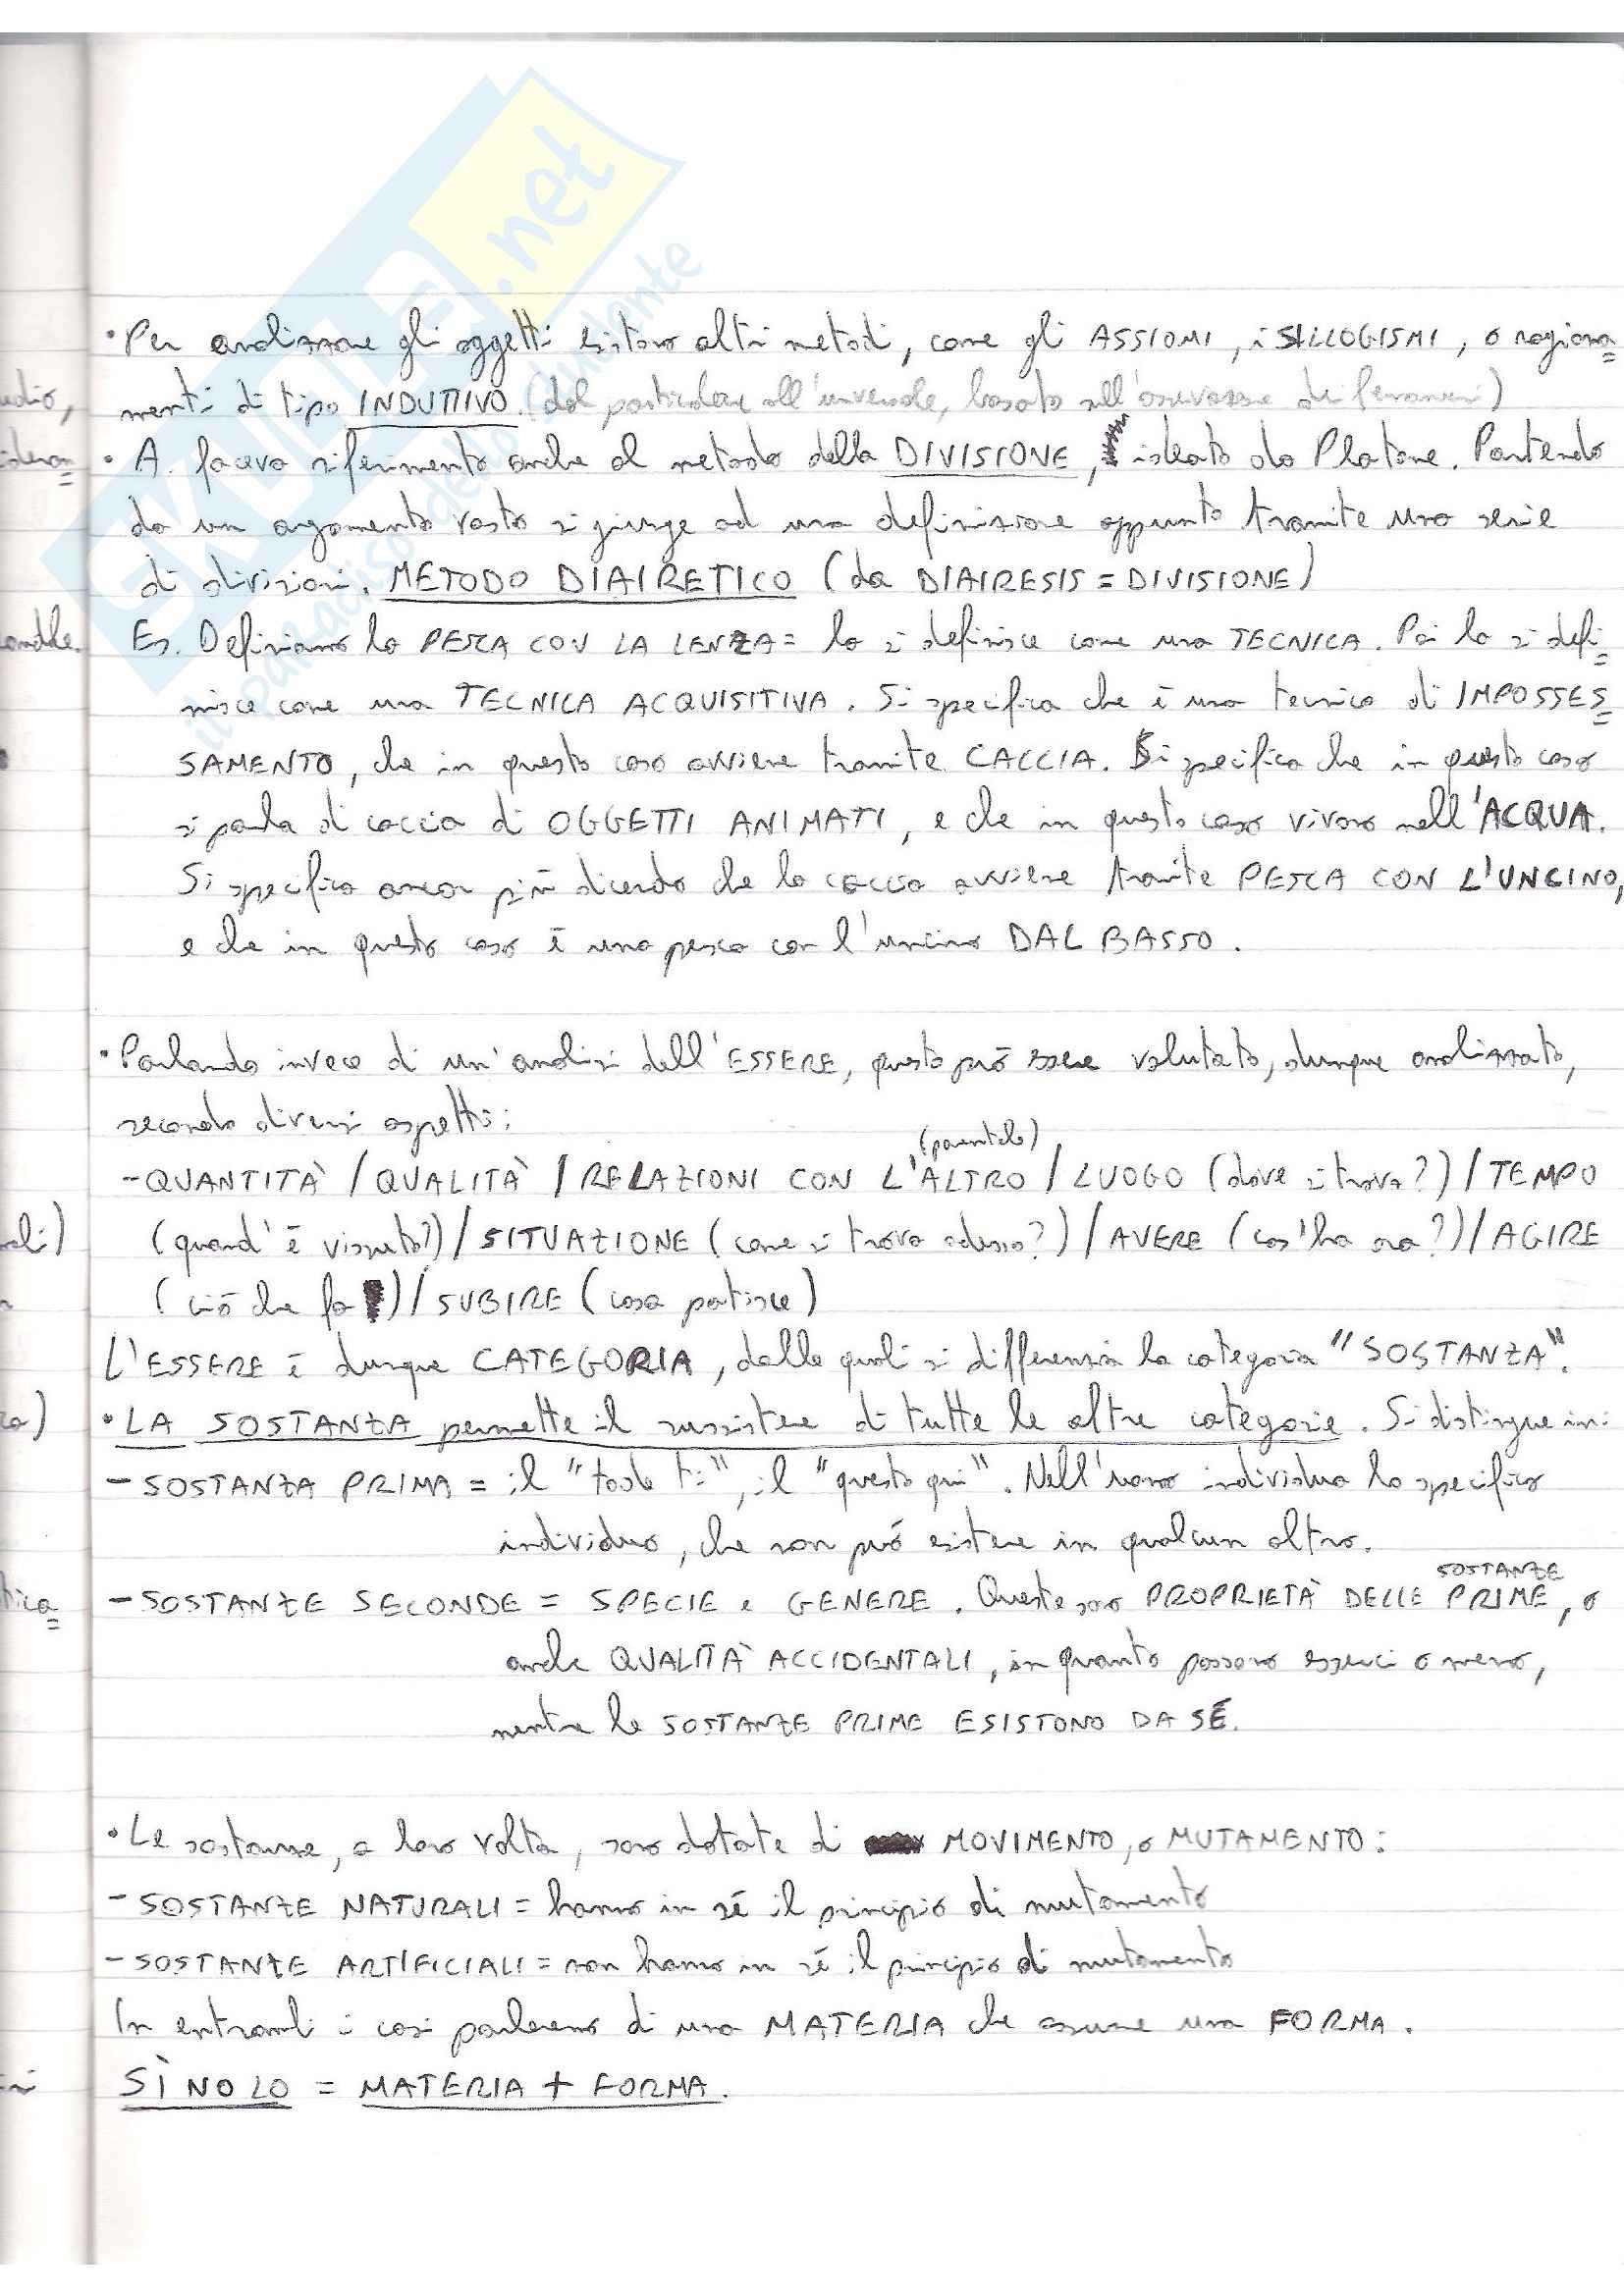 SKUOLA.net
il paradiso dello studente
• Per analizzare gli oggetti esistono altri metodi, come gli ASSIOMI, i SILLOGISMI, o ragiona=
menti di tipo INDUTTIVO. (dal particolare all'universale, basato sull'osservazione di fenomeni)
• A. faceva riferimento anche al metodo della DIVISIONE, ideato da Platone. Partendo
da un argomento vasto si giunge ad una definizione appunto tramite una serie
di divisioni. METODO DIAIRETICO (da DIAIRESIS = DIVISIONE)
Es. Definiamo la PESCA CON LA LENZA = la si definisce come una TECNICA. Poi la si defi=
nisce come una TECNICA ACQUISITIVA. Si specifica che è una tecnica di IMPOSSES=
SAMENTO, che in questo caso avviene tramite CACCIA. Si specifica che in questo caso
si parla di caccia di OGGETTI ANIMATI, e che in questo caso vivono nell'ACQUA.
Si specifica ancor più dicendo che la caccia avviene tramite PESCA CON L'UNCINO,
e che in questo caso è una pesca con l'uncino DAL BASSO.
• Parlando invece di un'analisi dell'ESSERE, questo può essere valutato, dunque analizzato,
secondo diversi aspetti:
(parentela)
- QUANTITÀ / QUALITÀ / RELAZIONI CON L'ALTRO / LUOGO (dove si trova?) / TEMPO
(quand'è vissuto?) / SITUAZIONE (come si trova adesso?) / AVERE (cos'ha ora?) / AGIRE
(ciò che fa) / SUBIRE (cosa patisce)
L'ESSERE è dunque CATEGORIA, dalle quali si differenzia la categoria "SOSTANZA".
• LA SOSTANZA permette il sussistere di tutte le altre categorie. Si distingue in:
- SOSTANZA PRIMA = il "tode ti", il "questo qui". Nell'uomo individua lo specifico
individuo, che non può esistere in qualcun altro.
SOSTANZE
- SOSTANZE SECONDE = SPECIE e GENERE. Queste sono PROPRIETÀ DELLE PRIME, o
anche QUALITÀ ACCIDENTALI, in quanto possono esserci o meno,
mentre le SOSTANZE PRIME ESISTONO DA SÉ.
• Le sostanze, a loro volta, sono dotate di MOVIMENTO, o MUTAMENTO:
- SOSTANZE NATURALI = hanno in sé il principio di mutamento
- SOSTANZE ARTIFICIALI = non hanno in sé il principio di mutamento
In entrambi i casi parleremo di una MATERIA che assume una FORMA.
SÌNOLO = MATERIA + FORMA.